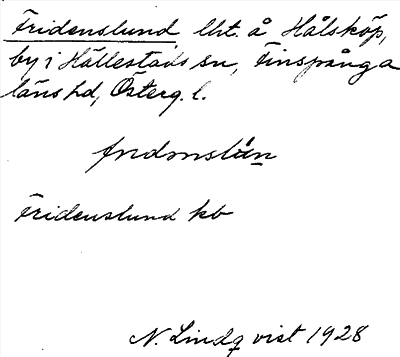 Fridenslund, lht. å Hålsköp,
by i Hällestads sn, Finspånga
läns hd, Österg. l.
fridnslún
Fridenslund kb
N. Lindqvist 1928